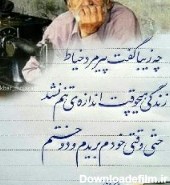 چه زیبا گفت پیرمرد خیاط
زندگی هیچوقت اندازه ی تنم نشد
حتی وقتی خودم بریدم و دوختم
Downloadefilm.ir